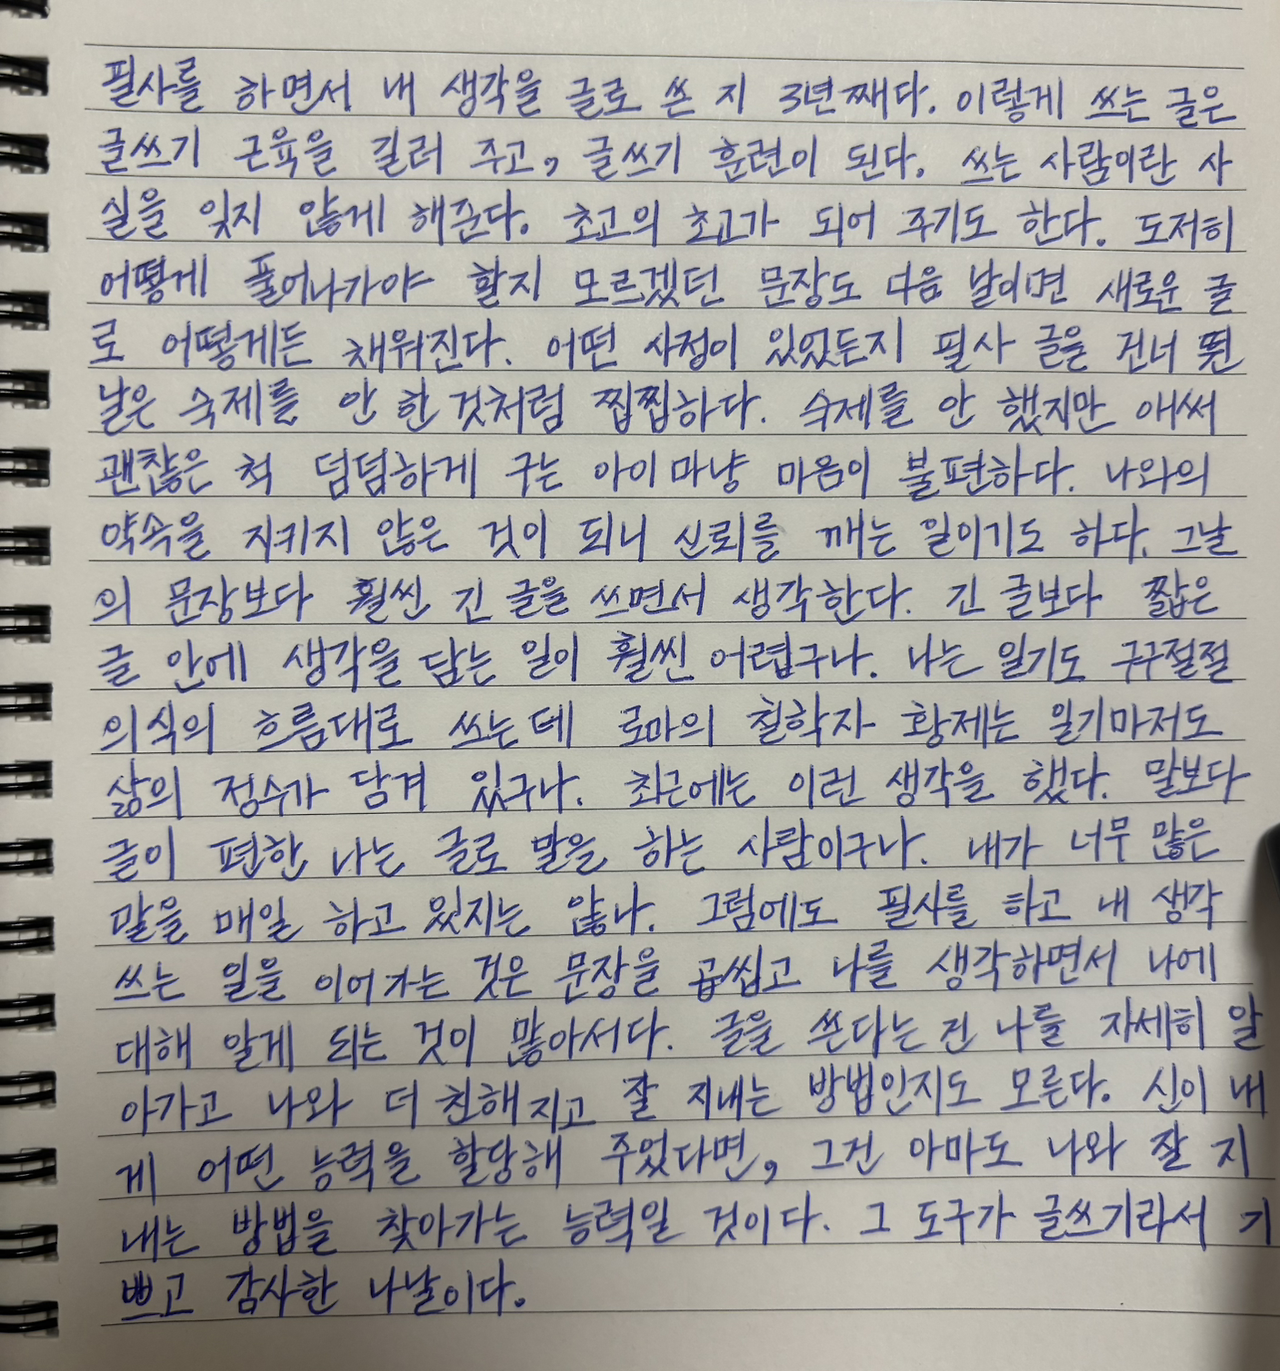 필사를 하면서 내 생각을 글로 쓴 지 3년째다. 이렇게 쓰는 글은
글쓰기 근육을 길러 주고, 글쓰기 훈련이 된다. 쓰는 사람이란 사
실을 잊지 않게 해준다. 초고의 초고가 되어 주기도 한다. 도저히
어떻게 풀어나가야 할지 모르겠던 문장도 다음 날이면 새로운 글
로 어떻게든 채워진다. 어떤 사정이 있었든지 필사 글을 건너 뛴
날은 숙제를 안 한 것처럼 찝찝하다. 숙제를 안 했지만 애써
괜찮은 척 덤덤하게 구는 아이마냥 마음이 불편하다. 나와의
약속을 지키지 않은 것이 되니 신뢰를 깨는 일이기도 하다. 그날
의 문장보다 훨씬 긴 글을 쓰면서 생각한다. 긴 글보다 짧은
글 안에 생각을 담는 일이 훨씬 어렵구나. 나는 일기도 구구절절
의식의 흐름대로 쓰는데 로마의 철학자 황제는 일기마저도
삶의 정수가 담겨 있구나. 최근에는 이런 생각을 했다. 말보다
글이 편한 나는 글로 말을 하는 사람이구나. 내가 너무 많은
말을 매일 하고 있지는 않나. 그럼에도 필사를 하고 내 생각
쓰는 일을 이어가는 것은 문장을 곱씹고 나를 생각하면서 나에
대해 알게 되는 것이 많아서다. 글을 쓴다는 건 나를 자세히 알
아가고 나와 더 친해지고 잘 지내는 방법인지도 모른다. 신이 내
게 어떤 능력을 할당해 주었다면, 그건 아마도 나와 잘 지
내는 방법을 찾아가는 능력일 것이다. 그 도구가 글쓰기라서 기
쁘고 감사한 나날이다.